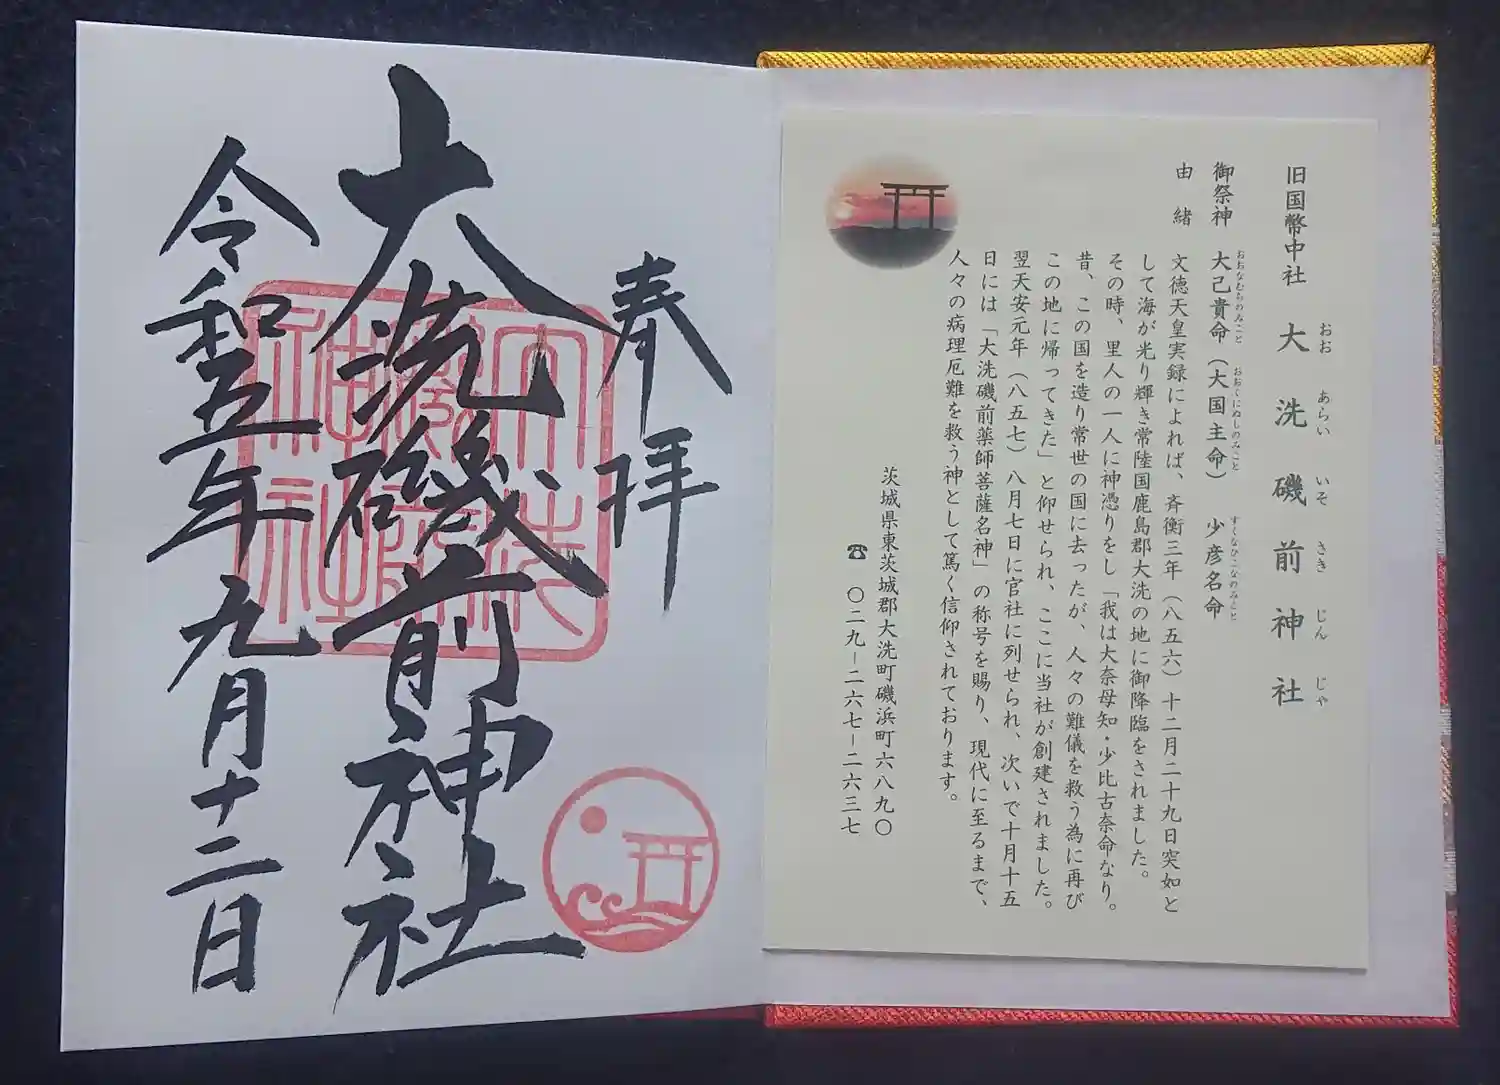 旧国幣中社 大洗磯前神社
おお あらい いそ さき じん じゃ
御祭神 大己貴命（大国主命） 少彦名命
おおなむちのみこと おおくにぬしのみこと すくなひこなのみこと
由緒
文徳天皇実録によれば、斉衡三年（八五六）十二月二十九日突如と
して海が光り輝き常陸国鹿島郡大洗の地に御降臨をされました。
その時、里人の一人に神憑りをし「我は大奈母知・少比古奈命なり。
昔、この国を造り常世の国に去ったが、人々の難儀を救う為に再び
この地に帰ってきた」と仰せられ、ここに当社が創建されました。
翌天安元年（八五七）八月七日に官社に列せられ、次いで十月十五
日には「大洗磯前薬師菩薩名神」の称号を賜り、現代に至るまで、
人々の病理厄難を救う神として篤く信仰されております。
茨城県東茨城郡大洗町磯浜町六八九〇
☎ 〇二九－二六七－二六三七
奉拝
大洗磯前神社
令和五年九月十二日
大洗
磯前
神社